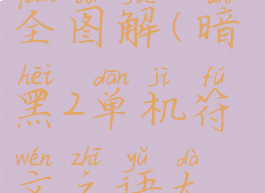 全图解(暗
hēi dān jī fú
黑2单机符
wén zhī yǔ dà
文之语大